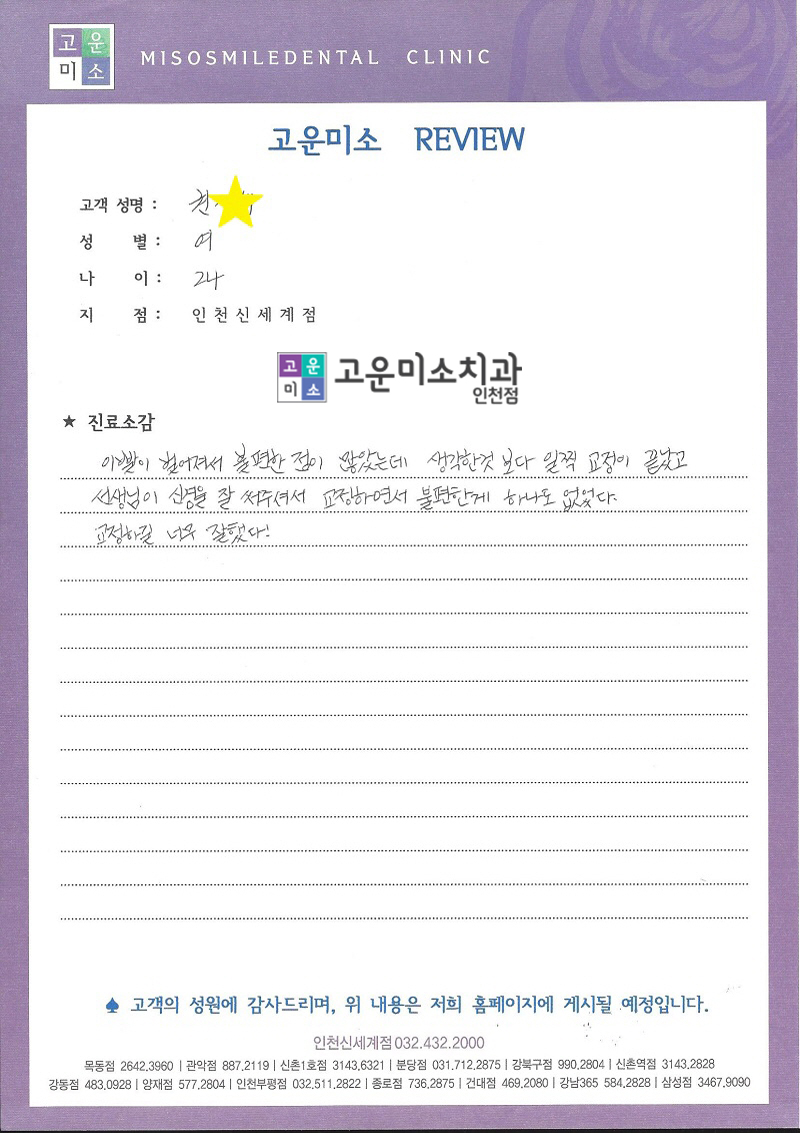 고운
미소
MISOSMILEDENTAL CLINIC
고운미소 REVIEW
고객 성명 : 권
성 별 : 여
나 이 : 24
지 점 : 인천신세계점
고운
미소
고운미소치과
인천점
★ 진료소감
이빨이 휘어져서 불편한 점이 많았는데 생각한것 보다 일찍 교정이 끝났고
선생님이 신경을 잘 써주셔서 교정하면서 불편한게 하나도 없었다.
교정하길 너무 잘했다!
♠ 고객의 성원에 감사드리며, 위 내용은 저희 홈페이지에 게시될 예정입니다.
인천신세계점 032.432.2000
목동점 2642.3960 | 관악점 887.2119 | 신촌1호점 3143.6321 | 분당점 031.712.2875 | 강북구점 990.2804 | 신촌역점 3143.2828
강동점 483.0928 | 양재점 577.2804 | 인천부평점 032.511.2822 | 종로점 736.2875 | 건대점 469.2080 | 강남365 584.2828 | 삼성점 3467.9090